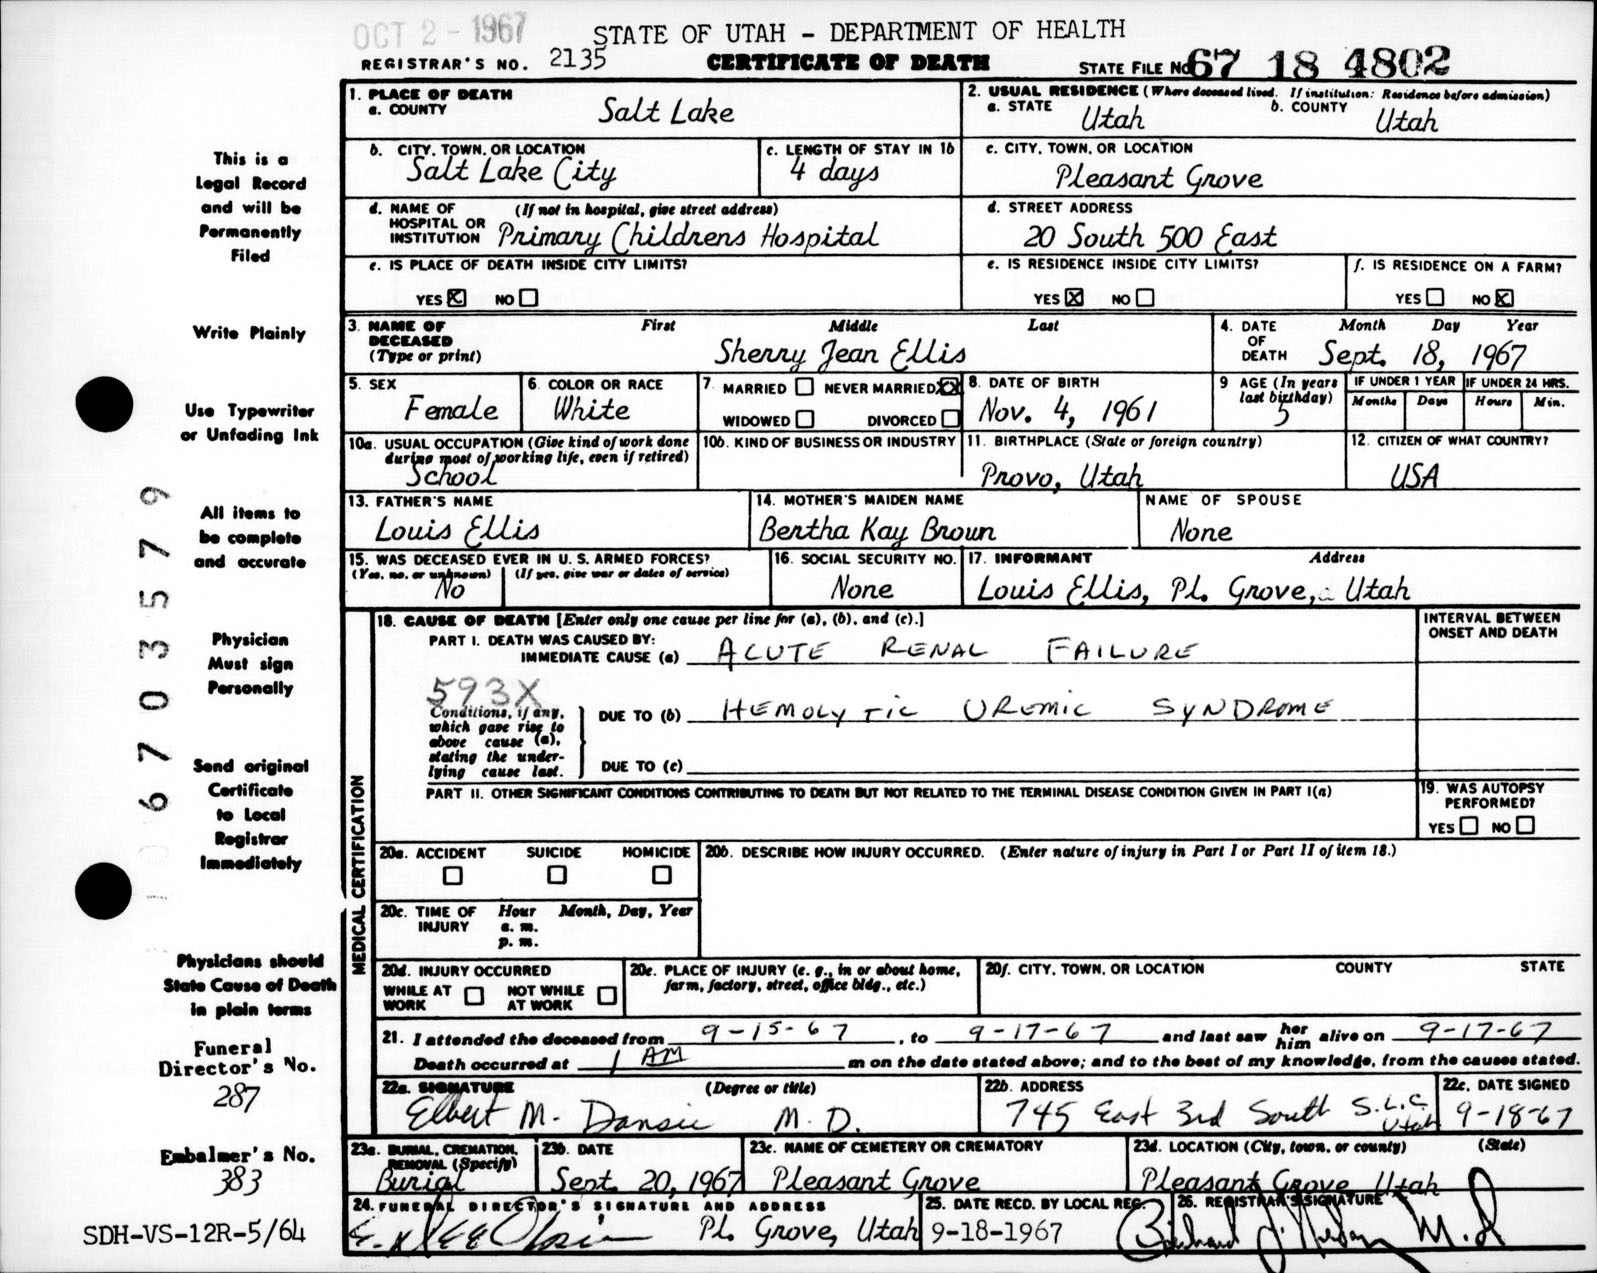 OCT 2 - 1967
STATE OF UTAH - DEPARTMENT OF HEALTH
REGISTRAR'S NO. 2135
CERTIFICATE OF DEATH
STATE FILE NO. 67 18 4802
This is a
Legal Record
and will be
Permanently
Filed
Write Plainly
Use Typewriter
or Unfading Ink
All items to
be complete
and accurate
Physician
Must sign
Personally
Send original
Certificate
to Local
Registrar
Immediately
Physicians should
State Cause of Death
in plain terms
Funeral
Director's No.
287
Embalmer's No.
383
SDH-VS-12R-5/64
06703579
1. PLACE OF DEATH
a. COUNTY Salt Lake
2. USUAL RESIDENCE (Where deceased lived. If institution: Residence before admission)
a. STATE Utah b. COUNTY Utah
b. CITY, TOWN, OR LOCATION
Salt Lake City
c. LENGTH OF STAY IN 1b
4 days
c. CITY, TOWN, OR LOCATION
Pleasant Grove
d. NAME OF HOSPITAL OR INSTITUTION (If not in hospital, give street address)
Primary Childrens Hospital
d. STREET ADDRESS
20 South 500 East
e. IS PLACE OF DEATH INSIDE CITY LIMITS?
YES X NO
e. IS RESIDENCE INSIDE CITY LIMITS?
YES X NO
f. IS RESIDENCE ON A FARM?
YES NO X
3. NAME OF DECEASED (Type or print) First Middle Last
Sherry Jean Ellis
4. DATE OF DEATH Month Day Year
Sept. 18, 1967
5. SEX
Female
6. COLOR OR RACE
White
7 MARRIED NEVER MARRIED XX
WIDOWED DIVORCED
8. DATE OF BIRTH
Nov. 4, 1961
9 AGE (In years last birthday)
5
IF UNDER 1 YEAR
Months Days
IF UNDER 24 HRS.
Hours Min.
10a. USUAL OCCUPATION (Give kind of work done during most of working life, even if retired)
School
10b. KIND OF BUSINESS OR INDUSTRY
11. BIRTHPLACE (State or foreign country)
Provo, Utah
12. CITIZEN OF WHAT COUNTRY?
USA
13. FATHER'S NAME
Louis Ellis
14. MOTHER'S MAIDEN NAME
Bertha Kay Brown
NAME OF SPOUSE
None
15. WAS DECEASED EVER IN U. S. ARMED FORCES?
(Yes, no, or unknown) (If yes, give war or dates of service)
No
16. SOCIAL SECURITY NO.
None
17. INFORMANT Address
Louis Ellis, Pl. Grove, Utah
MEDICAL CERTIFICATION
18. CAUSE OF DEATH [Enter only one cause per line for (a), (b), and (c).]
INTERVAL BETWEEN
ONSET AND DEATH
PART I. DEATH WAS CAUSED BY:
IMMEDIATE CAUSE (a) ACUTE RENAL FAILURE
593X
Conditions, if any,
which gave rise to
above cause (a),
stating the under-
lying cause last.
DUE TO (b) HEMOLYTIC UREMIC SYNDROME
DUE TO (c)
PART II. OTHER SIGNIFICANT CONDITIONS CONTRIBUTING TO DEATH BUT NOT RELATED TO THE TERMINAL DISEASE CONDITION GIVEN IN PART I(a)
19. WAS AUTOPSY
PERFORMED?
YES NO
20a. ACCIDENT SUICIDE HOMICIDE
20b. DESCRIBE HOW INJURY OCCURRED. (Enter nature of injury in Part I or Part II of item 18.)
20c. TIME OF INJURY Hour Month, Day, Year
a. m.
p. m.
20d. INJURY OCCURRED
WHILE AT WORK NOT WHILE AT WORK
20e. PLACE OF INJURY (e. g., in or about home, farm, factory, street, office bldg., etc.)
20f. CITY, TOWN, OR LOCATION COUNTY STATE
21. I attended the deceased from 9-15-67, to 9-17-67 and last saw her him alive on 9-17-67
Death occurred at 1 AM m on the date stated above; and to the best of my knowledge, from the causes stated.
22a. SIGNATURE (Degree or title)
Elbert M. Dansie M. D.
22b. ADDRESS
745 East 3rd South S.L.C. Utah
22c. DATE SIGNED
9-18-67
23a. BURIAL, CREMATION, REMOVAL (Specify)
Burial
23b. DATE
Sept. 20, 1967
23c. NAME OF CEMETERY OR CREMATORY
Pleasant Grove
23d. LOCATION (City, town, or county) (State)
Pleasant Grove Utah
24. FUNERAL DIRECTOR'S SIGNATURE AND ADDRESS
Pl. Grove, Utah
25. DATE RECD. BY LOCAL REG.
9-18-1967
26. REGISTRAR'S SIGNATURE
M.D.